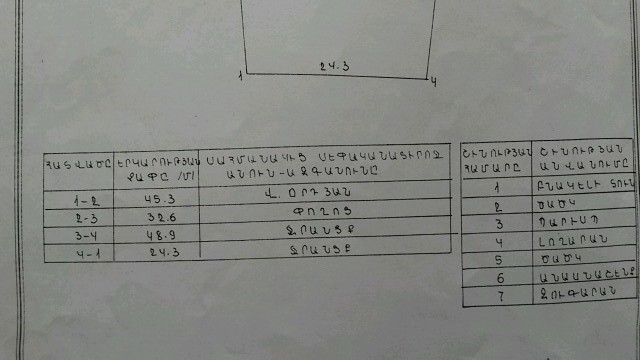 24.3
1 4
ՀԱՏՎԱԾԸ ԵՐԿԱՐՈՒԹՅԱՆ ՉԱՓԸ /Մ/ ՍԱՀՄԱՆԱԿԻՑ ՍԵՓԱԿԱՆԱՏԻՐՈՋ ԱՆՈՒՆ-ԱԶԳԱՆՈՒՆԸ
1-2 45.3 Վ. ՕՐԴՅԱՆ
2-3 32.6 ՓՈՂՈՑ
3-4 48.9 ՋՐԱՆՑՔ
4-1 24.3 ՋՐԱՆՑՔ
ՇԻՆՈՒԹՅԱՆ ՀԱՄԱՐԸ ՇԻՆՈՒԹՅԱՆ ԱՆՎԱՆՈՒՄԸ
1 ԲՆԱԿԵԼԻ ՏՈՒՆ
2 ԾԱԾԿ
3 ՊԱՐԻՍՊ
4 ԼՈՂԱՐԱՆ
5 ԾԱԾԿ
6 ԱՆԱՍՆԱՇԵՆՔ
7 ԶՈՒԳԱՐԱՆ